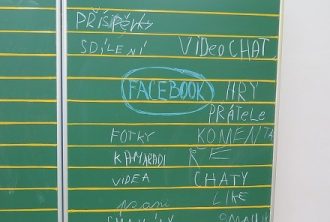 PŘÍSPĚVKY
SDÍLENÍ VIDEOCHAT
FACEBOOK HRY
PŘÁTELÉ
FOTKY KOMENTÁ
KAMARÁDI ŘE
VIDEA CHATY
LIKE